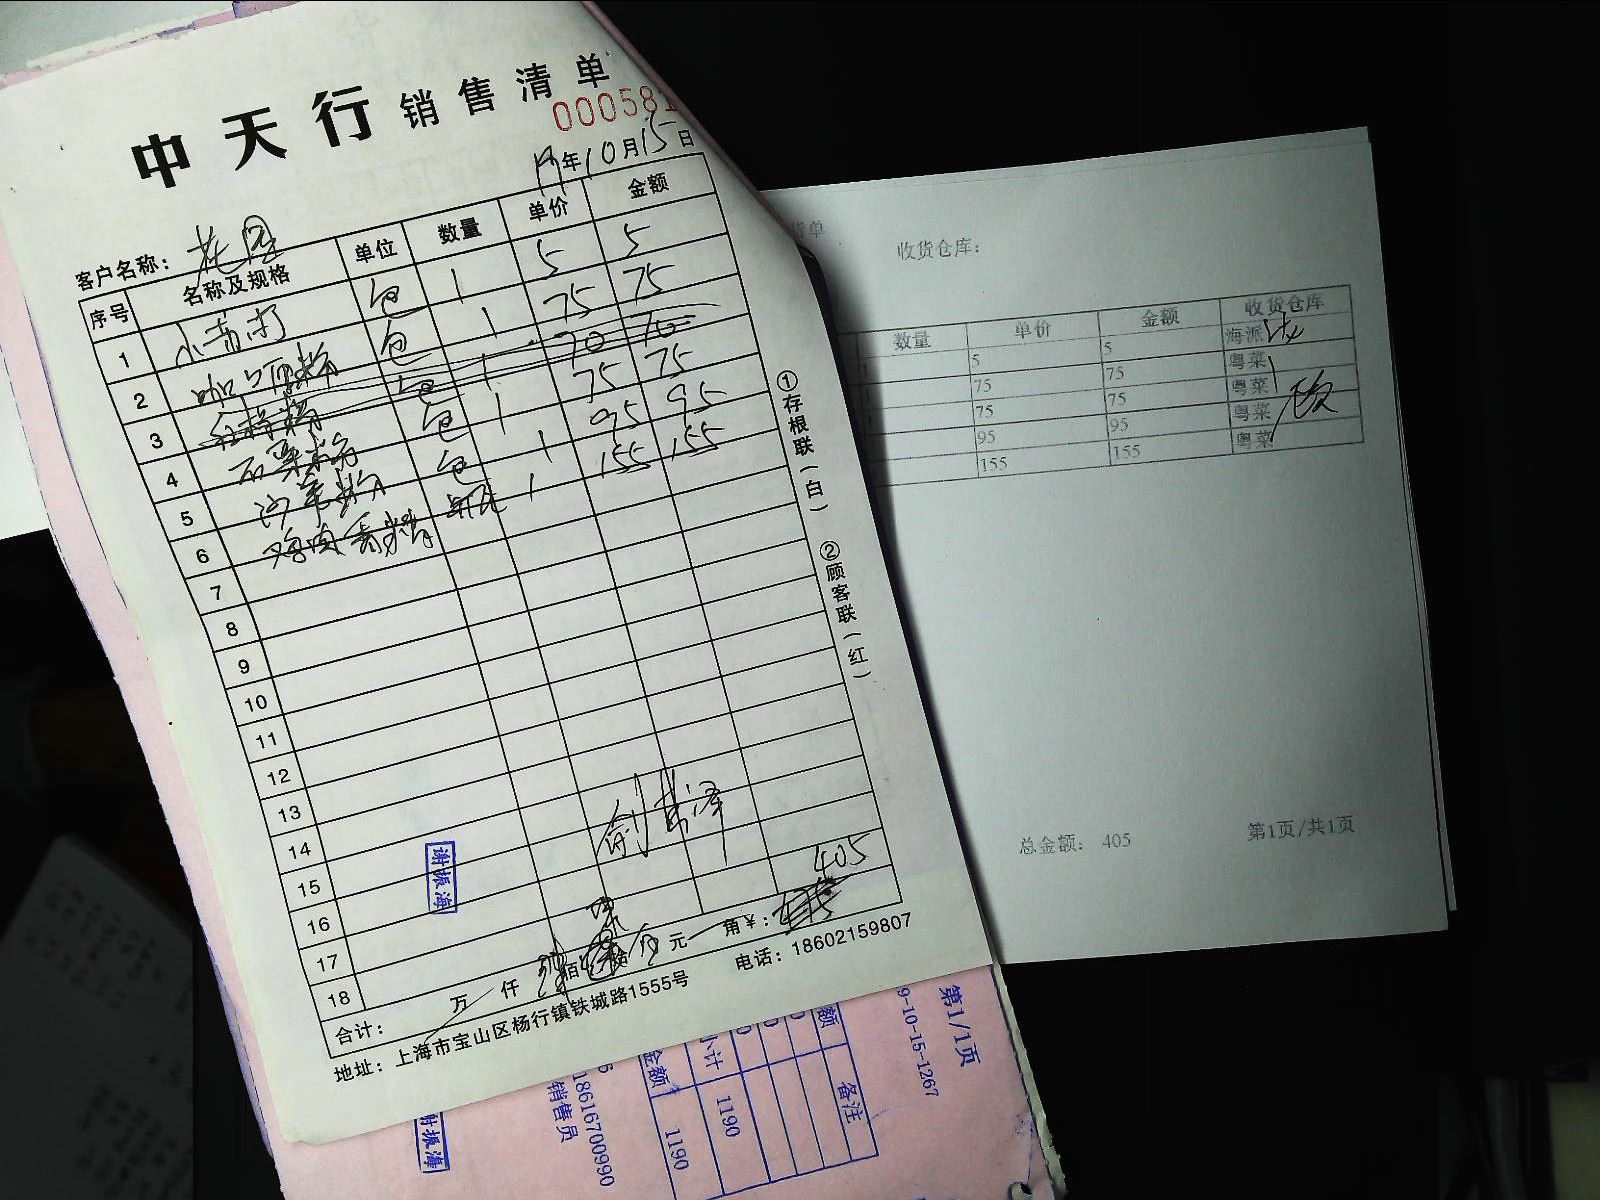 中天行销售清单
000581
19年10月15日
客户名称：花园
序号 名称及规格 单位 数量 单价 金额
1 小苏打 包 1 5 5
2 咖喱粉 包 1 75 75
3 包 1 70 70
4 包 1 75 75
5 沙姜粉 包 1 95 95
6 鸡肉香精 瓶 1 155 155
7
8
9
10
11
12
13
14
15
16
17
18
谢振海
405
合计： 万 仟 佰 拾 元 角 ¥：
地址：上海市宝山区杨行镇铁城路1555号 电话：18602159807
①存根联（白） ②顾客联（红）
货单
收货仓库：
数量 单价 金额 收货仓库
1 5 5 海派
75 75 粤菜
75 75 粤菜
95 95 粤菜
155 155 粤菜
总金额： 405 第1页/共1页
第1/1页
9-10-15-1267
额 备注
小计 1190
金额 1190
18616700990
销售员
谢振海